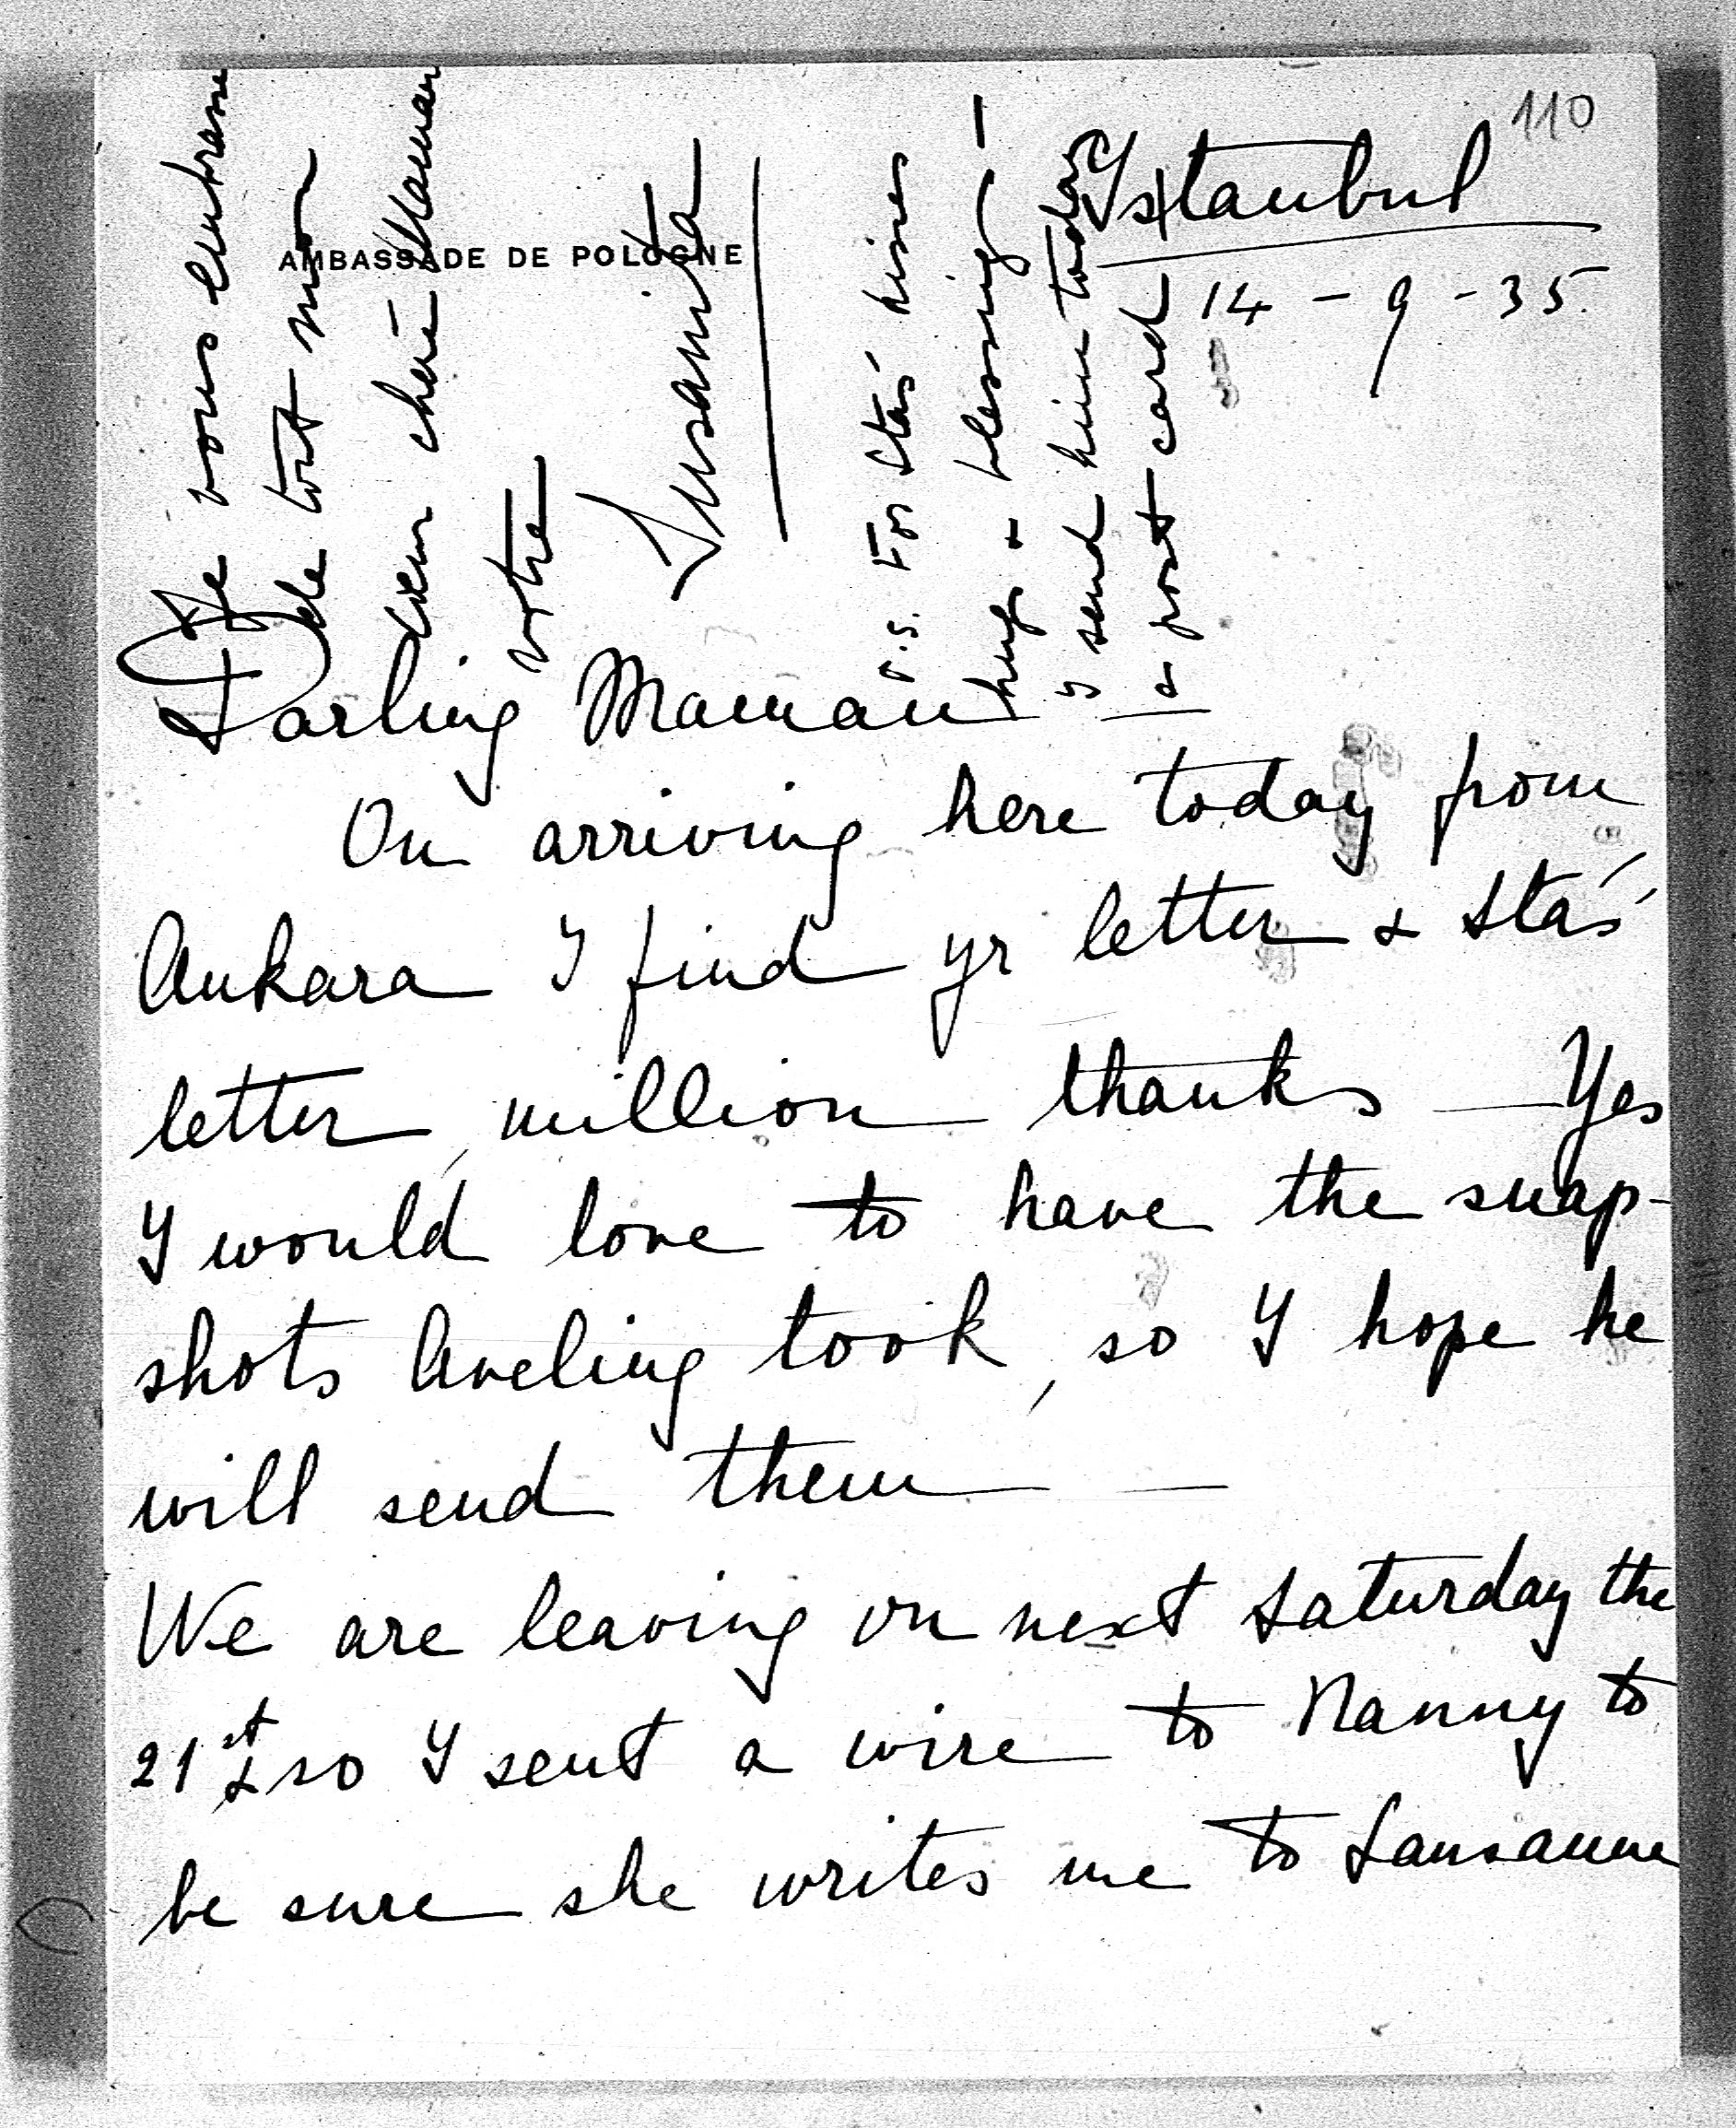 110
Istanbul
AMBASSADE DE POLOGNE
14 - 9 - 35.
Darling Maman —
On arriving here today from
Ankara I find yr letter & Stás'
letter, million thanks — Yes
I would love to have the snap-
shots Aveling took, so I hope he
will send them —
We are leaving on next Saturday the
21st & so I sent a wire to Nanny to
be sure she writes me to Lausanne
Je vous
de tout mon
cœur chère Maman
votre
Susanita
P.S. For Stás' kisses
hugs & blessings —
I send him today
a post card